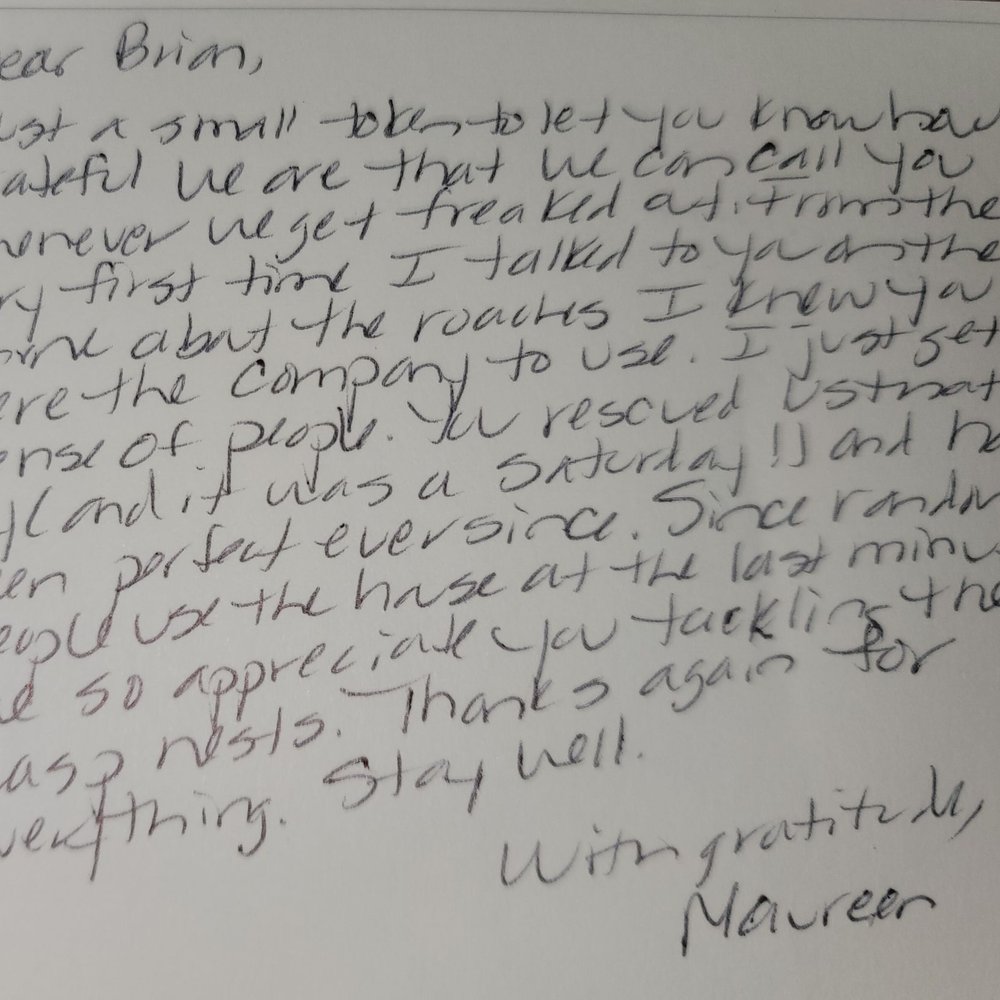 ear Brian,
ust a small token to let you know how
ateful we are that we can call you
henever we get freaked out. From the
ry first time I talked to you on the
one about the roaches I knew you
ere the company to use. I just get
ense of people. You rescued us that
y (and it was a Saturday!!) and ha
en perfect ever since. Since random
eople use the house at the last minu
e so appreciate you tackling the
asp nests. Thanks again for
verything. Stay well.
With gratitude,
Maureen